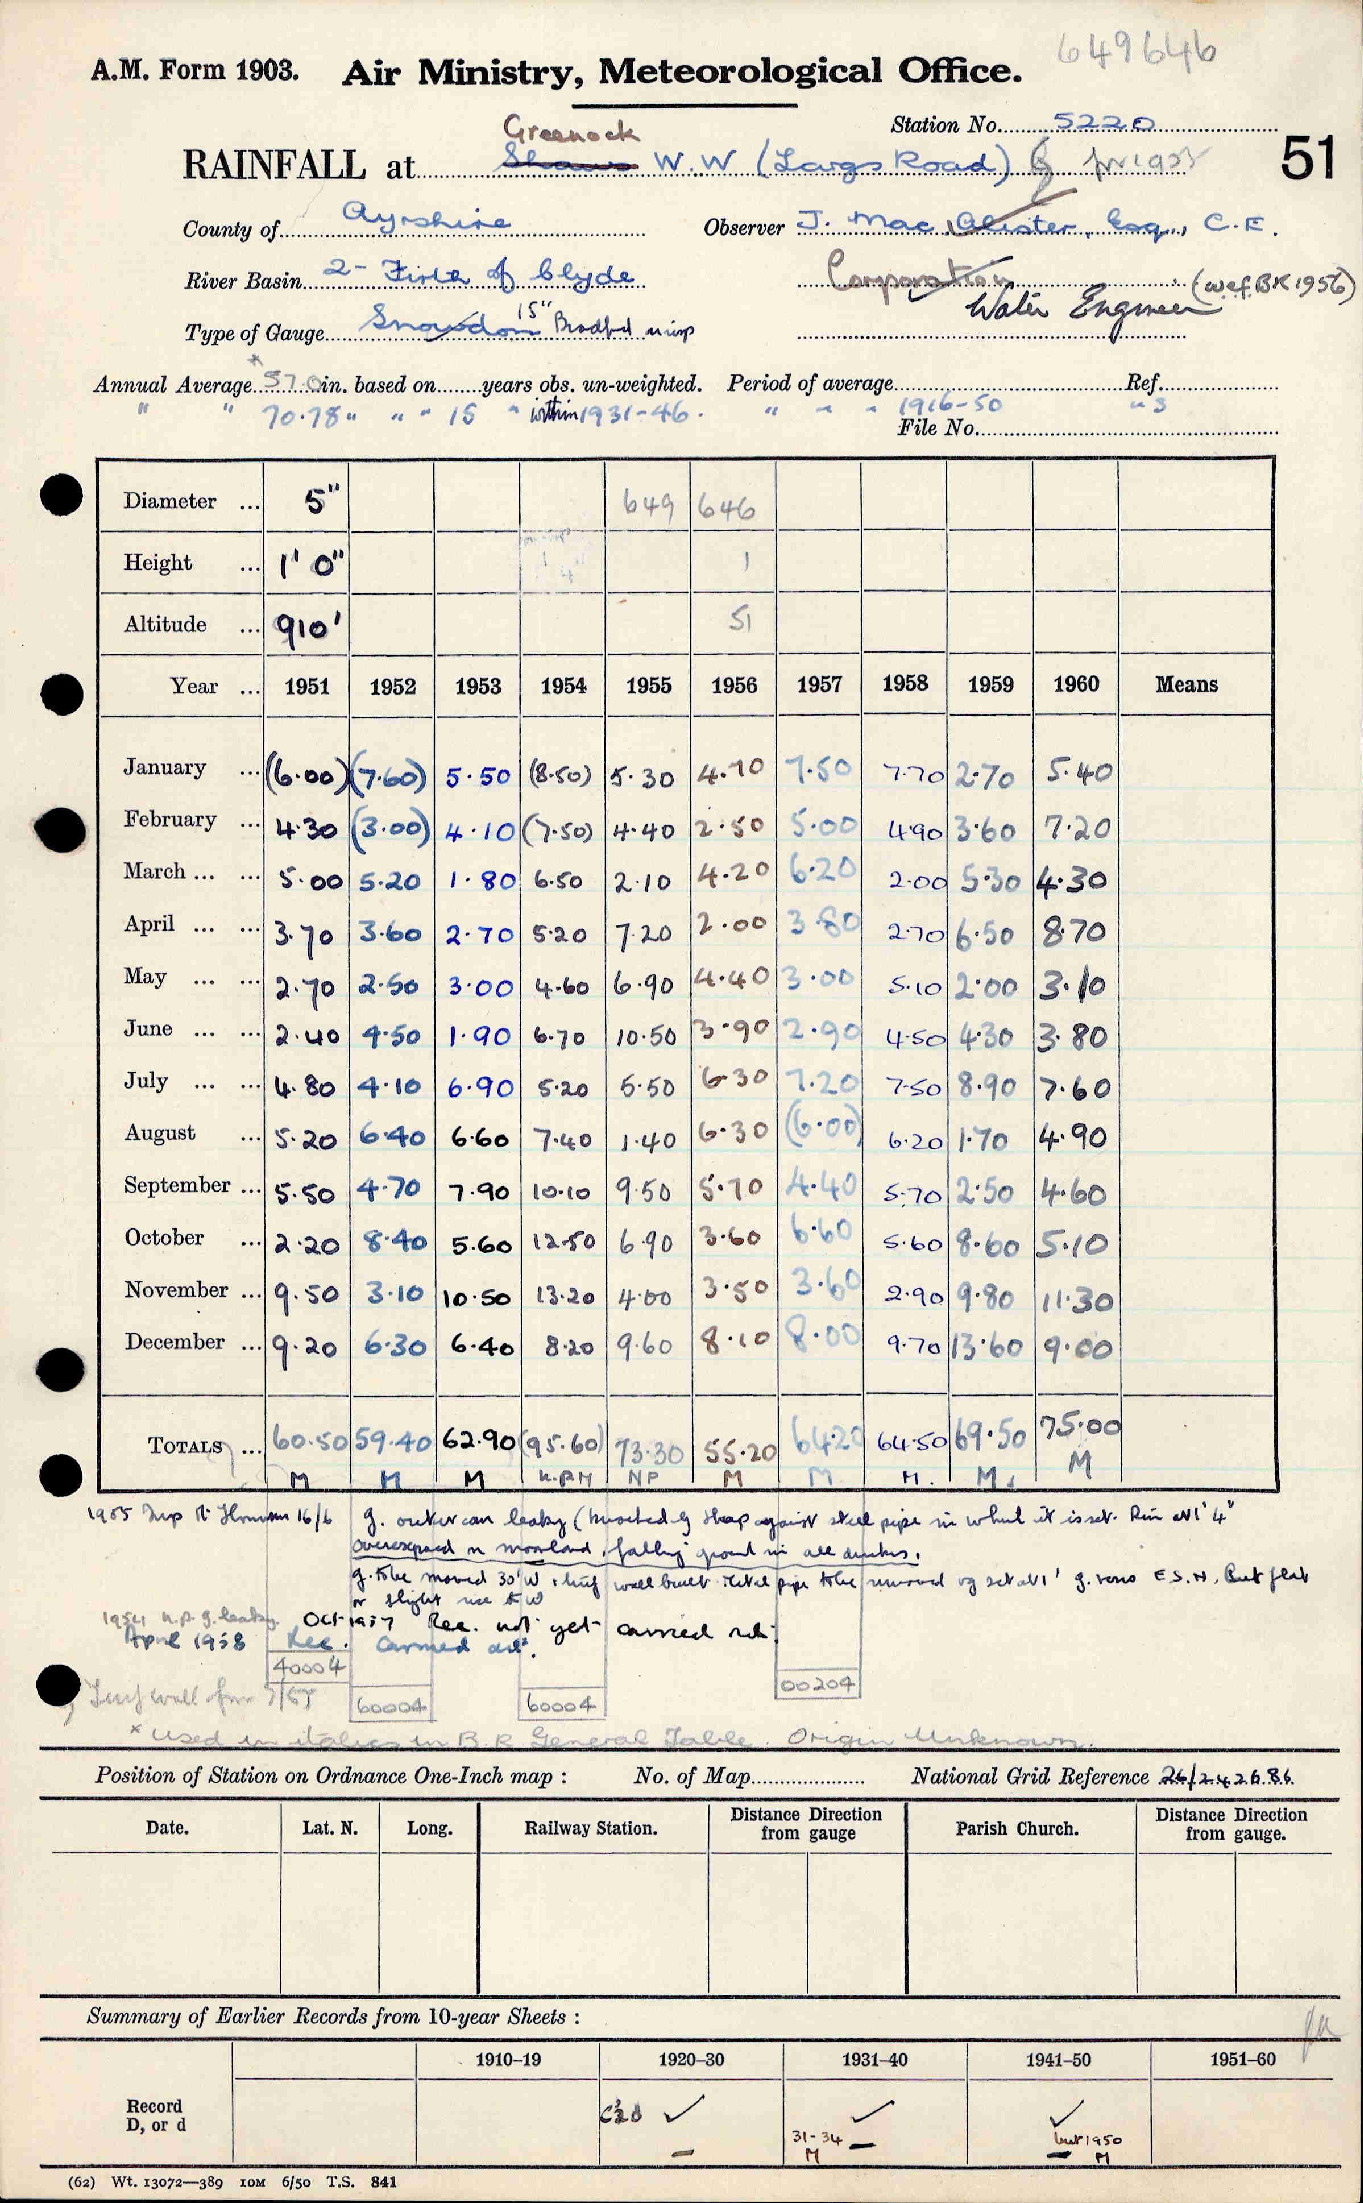 649646
A.M. Form 1903. Air Ministry, Meteorological Office.
Station No. 5220
Greenock
RAINFALL at Shaws W.W (Largs Road) 51
County of Ayrshire Observer J. Mac Alister, Esq., C.E.
River Basin 2- Firth of Clyde Corporation (wef BK 1956)
Water Engineer
Type of Gauge Snowdon 15" Bradford
Annual Average *57.0 in. based on years obs. un-weighted. Period of average Ref.
" " 70.78 " " " 15 " within 1931-46. " " " 1916-50 " S
File No.
Diameter ... 5" 649 646
Height ... 1' 0" 1
Altitude ... 910' 51
Year ... 1951 1952 1953 1954 1955 1956 1957 1958 1959 1960 Means
January ... (6.00) (7.60) 5.50 (8.50) 5.30 4.70 7.50 7.70 2.70 5.40
February ... 4.30 (3.00) 4.10 (7.50) 4.40 2.50 5.00 4.90 3.60 7.20
March ... ... 5.00 5.20 1.80 6.50 2.10 4.20 6.20 2.00 5.30 4.30
April ... ... 3.70 3.60 2.70 5.20 7.20 2.00 3.80 2.70 6.50 8.70
May ... ... 2.70 2.50 3.00 4.60 6.90 4.40 3.00 5.10 2.00 3.10
June ... ... 2.40 4.50 1.90 6.70 10.50 3.90 2.90 4.50 4.30 3.80
July ... ... 4.80 4.10 6.90 5.20 5.50 6.30 7.20 7.50 8.90 7.60
August ... 5.20 6.40 6.60 7.40 1.40 6.30 (6.00) 6.20 1.70 4.90
September ... 5.50 4.70 7.90 10.10 9.50 5.70 4.40 5.70 2.50 4.60
October ... 2.20 8.40 5.60 12.50 6.90 3.60 6.60 5.60 8.60 5.10
November ... 9.50 3.10 10.50 13.20 4.00 3.50 3.60 2.90 9.80 11.30
December ... 9.20 6.30 6.40 8.20 9.60 8.10 8.00 9.70 13.60 9.00
TOTALS ... 60.50 59.40 62.90 (95.60) 73.30 55.20 64.20 64.50 69.50 75.00
M M M N.P.M NP M M M. M. M
1955 Insp 16/6 g. outer can leaky (knocked against steel pipe in which it is set. Rim at 1' 4"
overexposed on moorland, falling ground in all directions.
g. to be moved 30' W, turf wall built. Metal pipe to be removed set at 1' E.S.N, but flat
or slight rise to W
1954 N.P. g. leaky. Oct 1957 Rec. not yet carried out.
April 1958 Rec. carried out.
40004 00204
Turf wall from
60004 60004
* Used in italics in B.R General Table. Origin Unknown.
Position of Station on Ordnance One-Inch map : No. of Map National Grid Reference 26/242686
Date. Lat. N. Long. Railway Station. Distance Direction from gauge Parish Church. Distance Direction from gauge.
Summary of Earlier Records from 10-year Sheets :
1910–19 1920–30 1931–40 1941–50 1951–60
Record D, or d ✓ ✓ ✓
31-34 M but 1950 M
(62) Wt. 13072—389 10M 6/50 T.S. 841